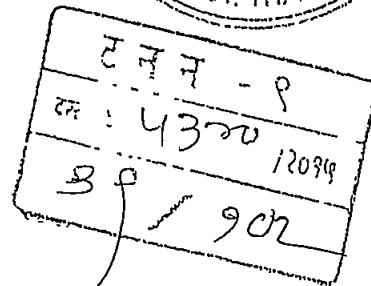 ट न न - १
दस्त : ५३२० /२०१५
३१ / १०२